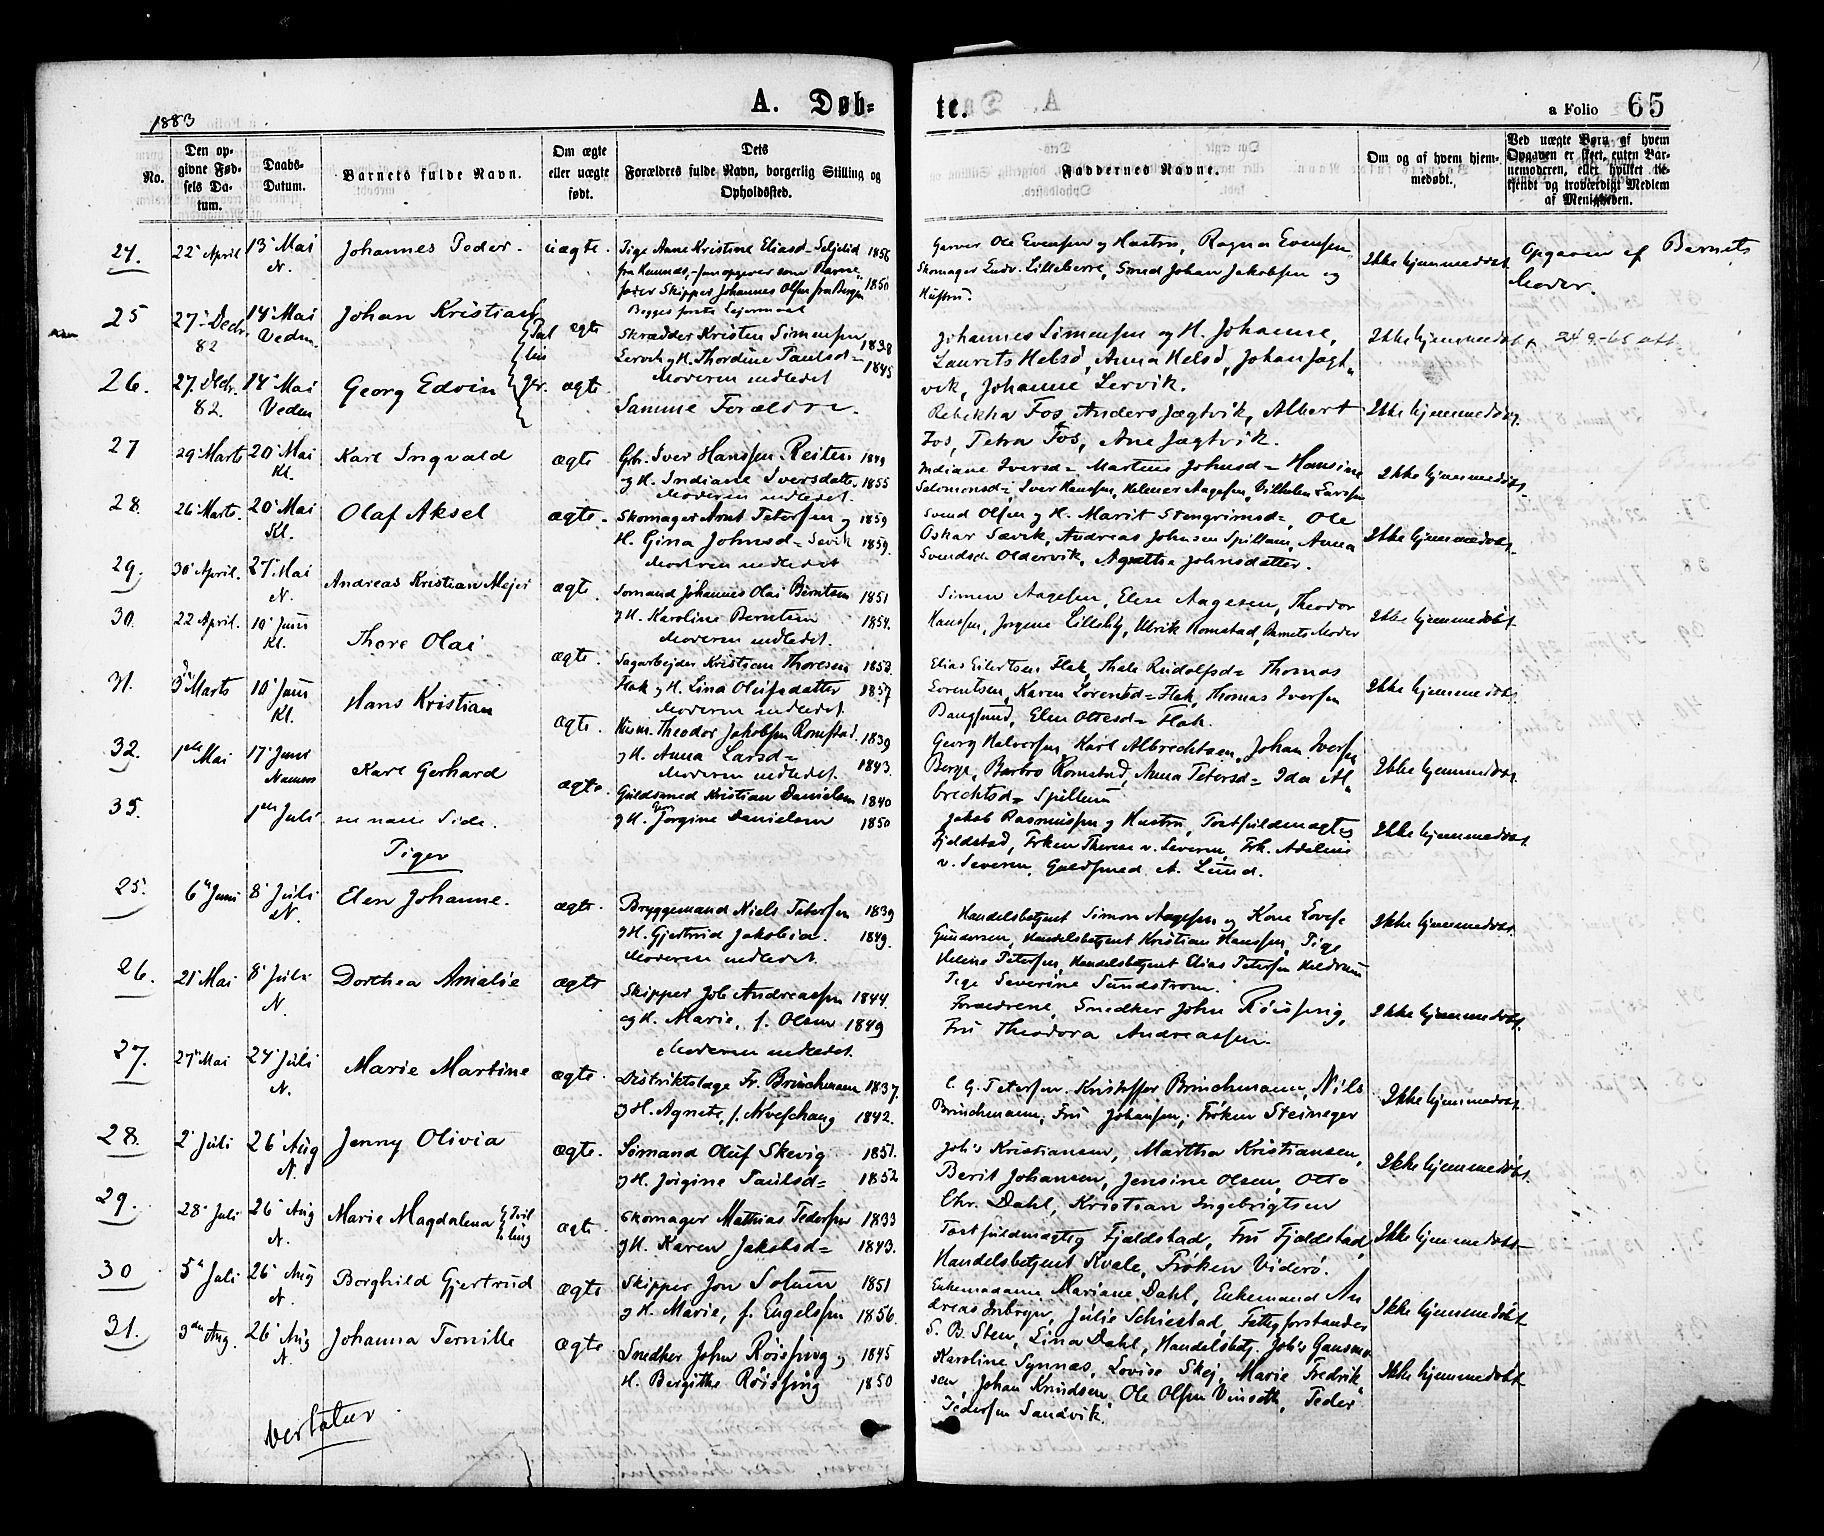 1883
A. Døb-
te.
a Folio 65
No.
Den op-
givne Fød-
sels Da-
tum.
Daabs-
Datum.
Barnets fulde Navn.
Om ægte
eller uægte
født.
Dets
Forældres fulde Navn, borgerlig Stilling og
Opholdssted.
Faddernes Navne.
Om og af hvem hjem-
medøbt.
Ved uægte Børn af hvem
Opgaven er skeet, enten Bar-
nemoderen, eller hvilket be-
kjendt og troværdigt Medlem
af Menigheden.
24. 22 April 13 Mai N. Johannes Peder. uægte.
Pige Anne Kristine Eliasd= Seljelid 1856
fader Skipper Johannes Olsen fra Bergen 1850
Begges første Leiermaal
Garver Ole Evensen og Hustru, Ragna Evensen,
Skomager Lilleberre, Smed Johan Jakobsen og
Hustru.
Ikke hjemmedøbt.
Opgaven af Barnets
Moder.
25 27 Decbr. 82 14 Mai Vedm. Johan Kristian ægte
Skrædder Kristen Simensen 1838
Lervik og H. Thordine Paulsd= 1845
Moderen indledet
Johannes Simensen og H. Johanne,
Laurits Helsø, Anna Helsø, Johan Jægt-
vik, Johanne Lervik.
Ikke hjemmedøbt
26. 27. Decbr. 82. 14 Mai Vedm Georg Edvin ægte
Samme Forældre.
Rebekka Fos, Anders Jægtvik, Albert
Fos, Petra Fos, Ane Jægtvik.
Ikke hjemmedøbt.
27 29 Marts 20 Mai Kl. Karl Ingvald ægte
Gbr. Iver Hanssen Reiten 1849
og H. Indiane Iversdatter 1855
Moderen indledet.
Indiane Iversd= Martine Johnsd= Hansine
Salomonsd=, Iver Hanssen, Helmer Aagesen, Vilhelm Larssen
Ikke hjemmedøbt
28. 26 Marts. 20 Mai Kl. Olaf Aksel ægte.
Skomager Arnt Petersen og 1859
H. Gina Johnsd= Sævik 1859.
Moderen indledet
Svend Olsen og H. Marit Stengrimsd=, Ole
Oskar Sævik, Andreas Johnsen Spillum, Anna
Svendsd. Oldervik, Agathe Johnsdatter.
Ikke hjemmedøbt.
29. 30 April. 27 Mai N. Andreas Kristian Mejer ægte.
Sømand Johannes Olai Berntsen 1851
og H. Karoline Berntsen 1854.
Moderen indledet.
Simon Aagesen, Elise Aagesen, Theodor
Hanssen, Jørgine Lilleby, Ulrik Romstad, Barnets Moder
Ikke hjemmedøbt.
30. 22 April. 10 Juni Kl. Thore Olai ægte.
Sagarbejder Kristian Thoresen 1852.
Flak og H. Lina Olufsdatter 1857
Moderen indledet.
Elias Eilertsen Flak, Thale Rudolfsd= Thomas
Lorentsen, Karen Lorentsd= Flak, Thomas Iversen
Bangsund, Elen Ottesd= Flak.
Ikke hjemmedøbt.
31. 3 Marts 10 Juni Kl. Hans Kristian ægte.
Husm. Theodor Jakobsen Romstad. 1839
og H. Anna Larsd= 1843.
Moderen indledet.
Georg Halvorsen, Karl Albrechtsen, Johan Iversen
Berge, Barbro Romstad, Anna Petersd= Ida Al-
brechtsd= Spillum
Ikke hjemmedøbt.
32. 1ste Mai 17 Juni Namsos Karl Gerhard ægte.
Guldsmed Kristian Danielsen 1840
og H. Jørgine Danielsen 1850
Jakob Rasmussen og Hustru, Postfuldmægtig
Fjeldstad, Frøken Therese v. Severen, Frk. Adeline
v. Severen, Guldsmed A. Lund.
Ikke hjemmedøbt.
35. 1ste Juli se næste Side.
Piger
25. 6 Juni 8 Juli N. Elen Johanne. ægte.
Bryggemand Niels Petersen 1839
og H. Gjertrud Jakobia. 1849.
Moderen indledet.
Handelsbetjent Simon Aagesen og Kone Lovise
Gundersen, Handelsbetjent Kristian Hanssen, Pige
Helene Petersen, Handelsbetjent Elias Petersen Heldrum
Pige Severine Sundstrøm.
Ikke hjemmedøbt.
26. 21 Mai 8 Juli N. Dorthea Amalie ægte
Skipper Joh Andreassen 1844
og H. Marie, f. Olsen 1849
Moderen indledet.
Forældrene, Snedker John Røissing,
Fru Theodora Andreassen.
Ikke hjemmedøbt.
27. 21 Mai 24 Juli N. Marie Martine ægte.
Distriktslæge Fr. Brinchmann 1837.
og H. Agnete, f. 1842.
C. G. Petersen. Kristoffer Brinchmann, Nils
Brinchmann, Fru Johansen, Frøken Steineger
Ikke hjemmedøbt.
28. 2 Juli 26 Aug N. Jenny Olivia ægte.
Sømand Oluf Skevig 1851.
og H. Jørgine Paulsd= 1852
Joh's Kristiansen, Martha Kristiansen,
Berit Johansen, Jensine Olsen, Otto
Chr. Dahl, Kristian Ingebrigtsen
Ikke hjemmedøbt.
29. 28 Juli 26 Aug N. Marie Magdalena Tvilling ægte.
Skomager Mathias Pedersen 1833
og H. Karen Jakobsd= 1843.
Postfuldmægtig Fjeldstad, Fru Fjeldstad
Handelsbetjent Kvale, Frøken Viderø.
Ikke hjemmedøbt
30 5 Juli 26 Aug N. Borghild Gjertrud ægte
Skipper Jon Solum 1851
og H. Marie, f. Engelsen 1856.
Enkemadame Mariane Dahl, Enkemand An
dreas, Julie Schiestad, Fattigforstander
S. B. Sten, Lina Dahl, Handelsbetj. Joh's Gansmo
Ikke hjemmedøbt
31. 3die Aug. 26 Aug N. Johanna Pernille ægte.
Snedker John Røissing og 1845
H. Bergithe Røissing 1850
Karoline Synnæs, Lovise Skej, Marie Fredrik-
sen, Johan Knudsen, Ole Olsen, Peder
Pedersen Sandvik.
Ikke hjemmedøbt
Vertatur